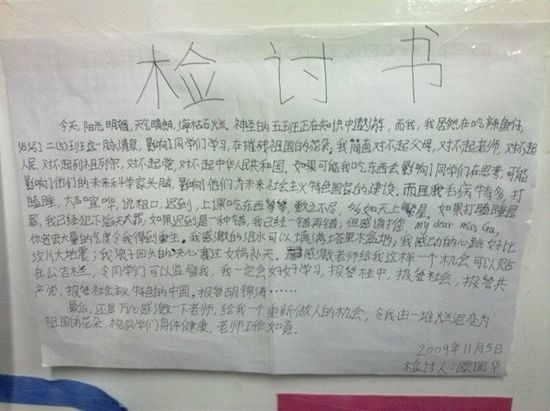 检讨书
今天,阳光明媚,天气晴朗,海枯石烂。神圣的五班正在知识中遨游,而我,我居然在吃辣鱼仔,
玷污了二(5)班这一脉清泉,影响了同学们学习,在摧碎祖国的花朵,我简直对不起父母,对不起老师,对不起
人民,对不起列祖列宗,对不起党,对不起中华人民共和国。如果可能我吃东西会影响了同学们在思考,可能
影响了他们的未来科学家头脑,影响他们为未来社会主义特色国家的建设。而且我毛病特多,打
瞌睡,大声喧哗,说粗口,迟到,上课吃东西等等,数之不尽,多如天上繁星。如果打瞌睡是
罪,我已经犯下滔天大罪,如果迟到是一种错,我已经一错再错,但感谢您,my dear miss Gu,
你宽宏大量的气度令我得到重生。我感激的泪水可以填满塔里木盆地,我感动的心跳好比
汶川大地震;我浪子回头的决心赛过女娲补天。感激老师给我这样一个机会可以贴
在公告栏,令同学们可以监督我,我一定会好好学习,报答社中,报答社会,报答共
产党,报答社会主义特色的中国,报答胡锦涛……
最后,还是万分感激一下老师,给我一个重新做人的机会,令我由一堆烂泥变为
祖国的花朵,祝同学们身体健康,老师工作如意。
2009年11月5日
检讨人:国华